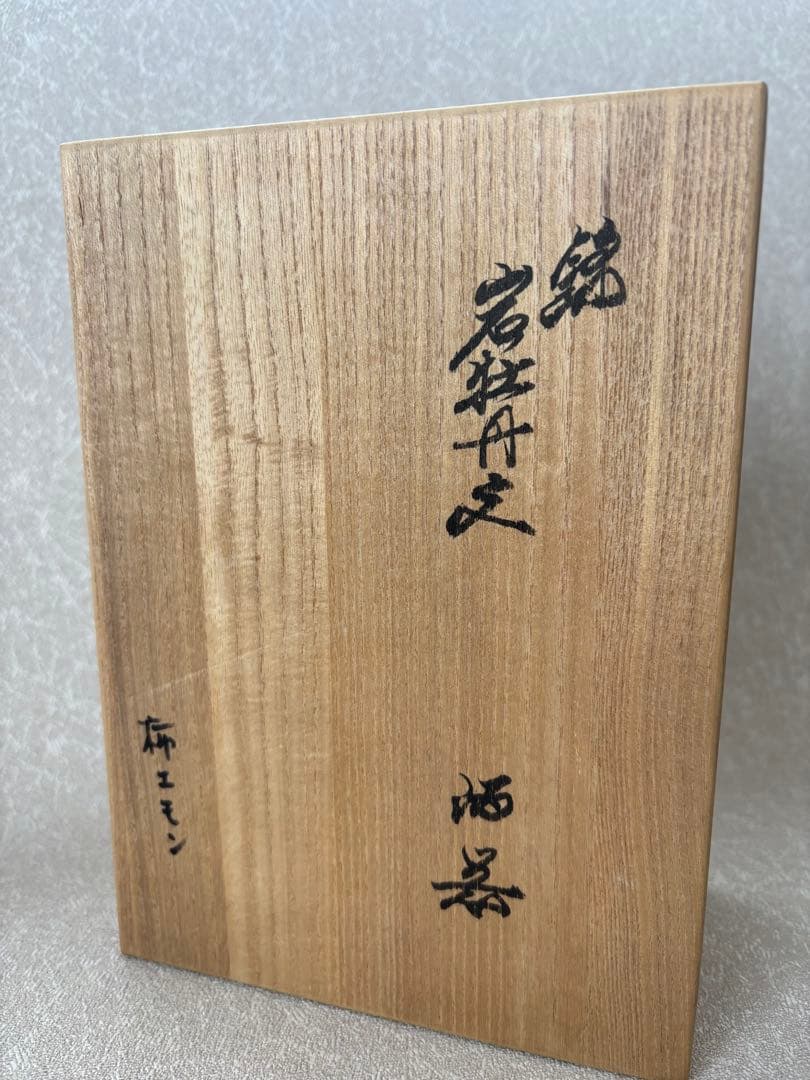 錦
岩牡丹文
酒器
柿エモン